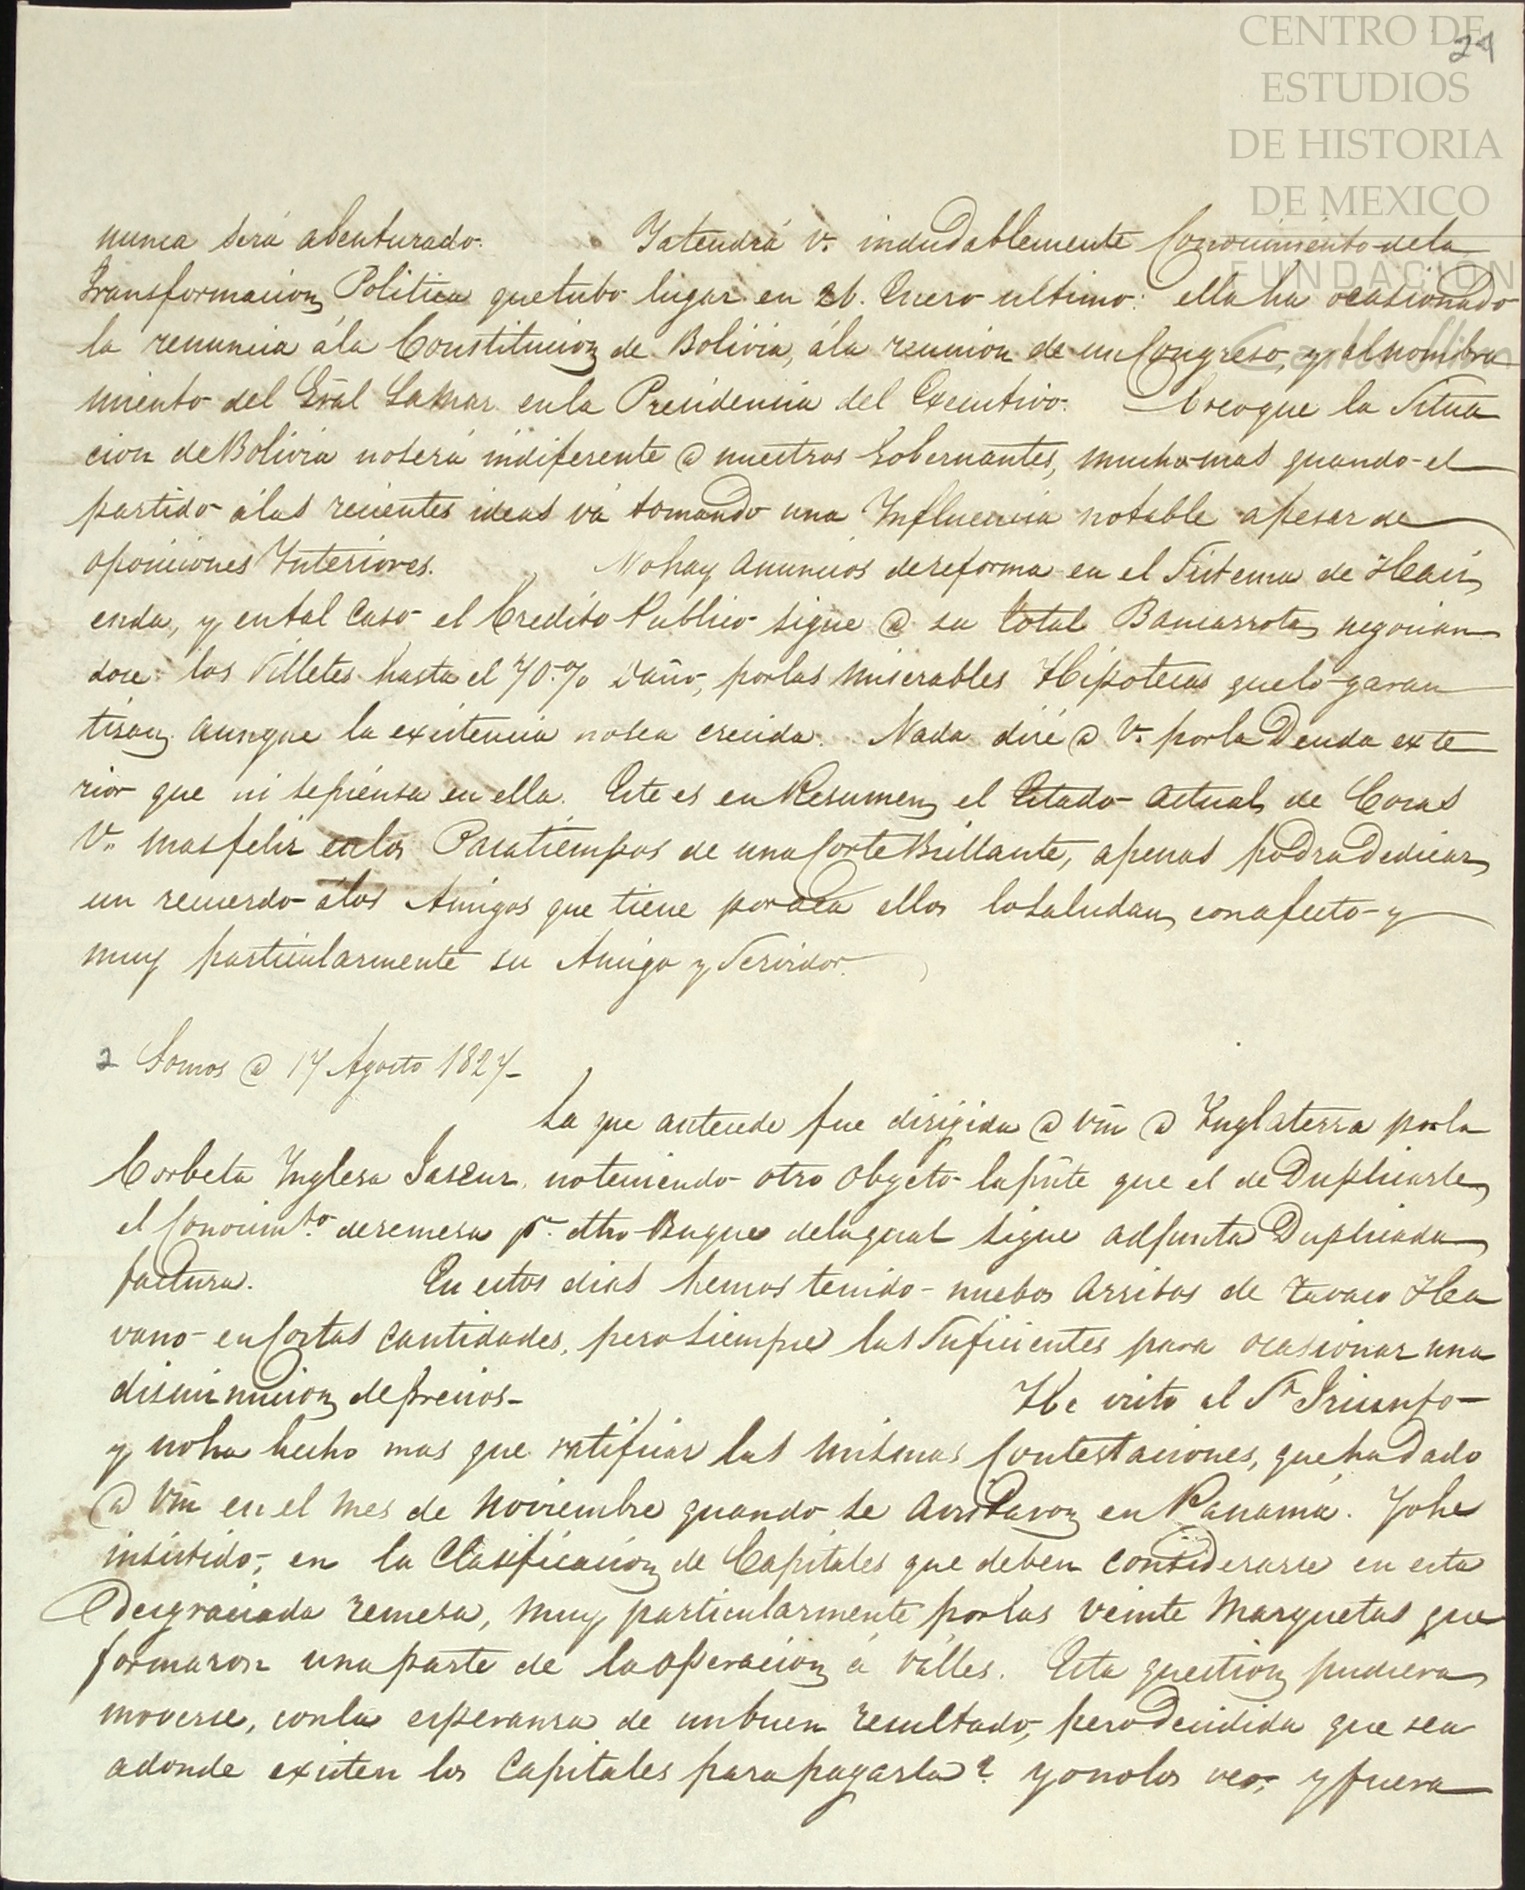 CENTRO DE
ESTUDIOS
DE HISTORIA
DE MEXICO
FUNDACION
Carlos Slim
24
nunca será abenturado. Yatendrá V. indudablemente Conocimiento dela
transformacion Politica quetubo lugar en 26. Enero ultimo: ella ha ocasionado
la renuncia ála Constitucion de Bolivia, ála reunion de un Congreso, y al nombra
miento del Gral Lamar enla Precidencia del Executivo. Creoque la Situa
cion de Bolivia noserá indiferente @ nuestros Gobernantes, muchomas quando el
partido álas recientes ideas vá tomando una Influencia notable apesar de
oposiciones Interiores. Nohay anuncios dereforma en el Sistema de Haci
enda, y ental Caso el Credito Publico sigue @ su total Bancarrota negocian
dose los Villetes hasta el 70.% Daño, porlas miserables Hipotecas quelo garan
tisan aunque la existencia nosea crecida. Nada diré @ V. porla Deuda exte
rior que ni sepiensa en ella. Este es en Resumen el Estado actual de Cosas
V. masfeliz enlos Pasatiempos de unaCorteBrillante, apenas podraDedicar
un recuerdo álos Amigos que tiene poracá ellos losaludan conafecto y
muy particularmente su Amigo y Servidor.
2 Somos @ 17 Agosto 1827
La que antecede fue dirigida @ Vm @ Inglaterra porla
Corbeta Inglesa Jaseur, noteniendo otro Obgeto lapñte que el de Duplicarle
el Conocimto. deremesa pr. dho Buque delaqual sigue adjunta Duplicada
factura. En estos dias hemos tenido nuebos arribos de tavaco Ha
vano enCortas Cantidades, perosiempre las suficientes para ocasionar una
disminucion deprecios- He visto al Sr. Triunfo
y noha hecho mas que ratificar las mismas Contestaciones, quehaDado
@ Vm en el mes de Noviembre quando se avistaron en Panamá. Yohe
insistido, en la Clasificacion de Capitales que deben considerarse en esta
Desgraciada remesa, muy particularmente porlas veinte Marquetas que
formaron unaparte de laoperacion á Válles. Esta question pudiera
moverse, conla esperansa de unbuen resultado, peroDecidida que sea
adonde existen los Capitales parapagarla? yonolos veo, y fuera